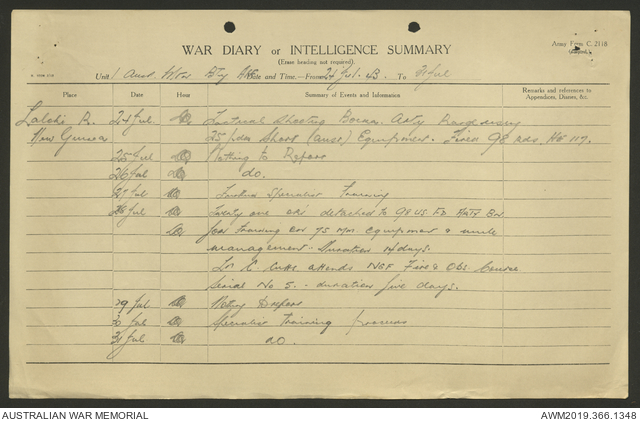 Army Form C. 2118
WAR DIARY or INTELLIGENCE SUMMARY
(Erase heading not required).
Unit 1 Aust Mtn Bty Date and Time—From 24 Jul. 43 To 31 Jul
Place Date Hour Summary of Events and Information Remarks and references to Appendices, Diaries, &c.
Laloki R. 24 Jul. Shooting Arty
New Guinea 25 pdr Short (Aust) Equipment. Fired 98 rds. HE 117.
25 Jul Nothing to Report
26 Jul do.
27 Jul Further Specialist Training
28 Jul Twenty one ORs detached to 98 US FD Arty Bn
for training on 75 mm Equipment & mule
management - Duration 14 days.
Lt attends NGF Fire & Obs Course
Serial No 5. - duration five days.
29 Jul Nothing to Report
30 Jul Specialist Training proceeds
31 Jul do.
AUSTRALIAN WAR MEMORIAL
AWM2019.366.1348